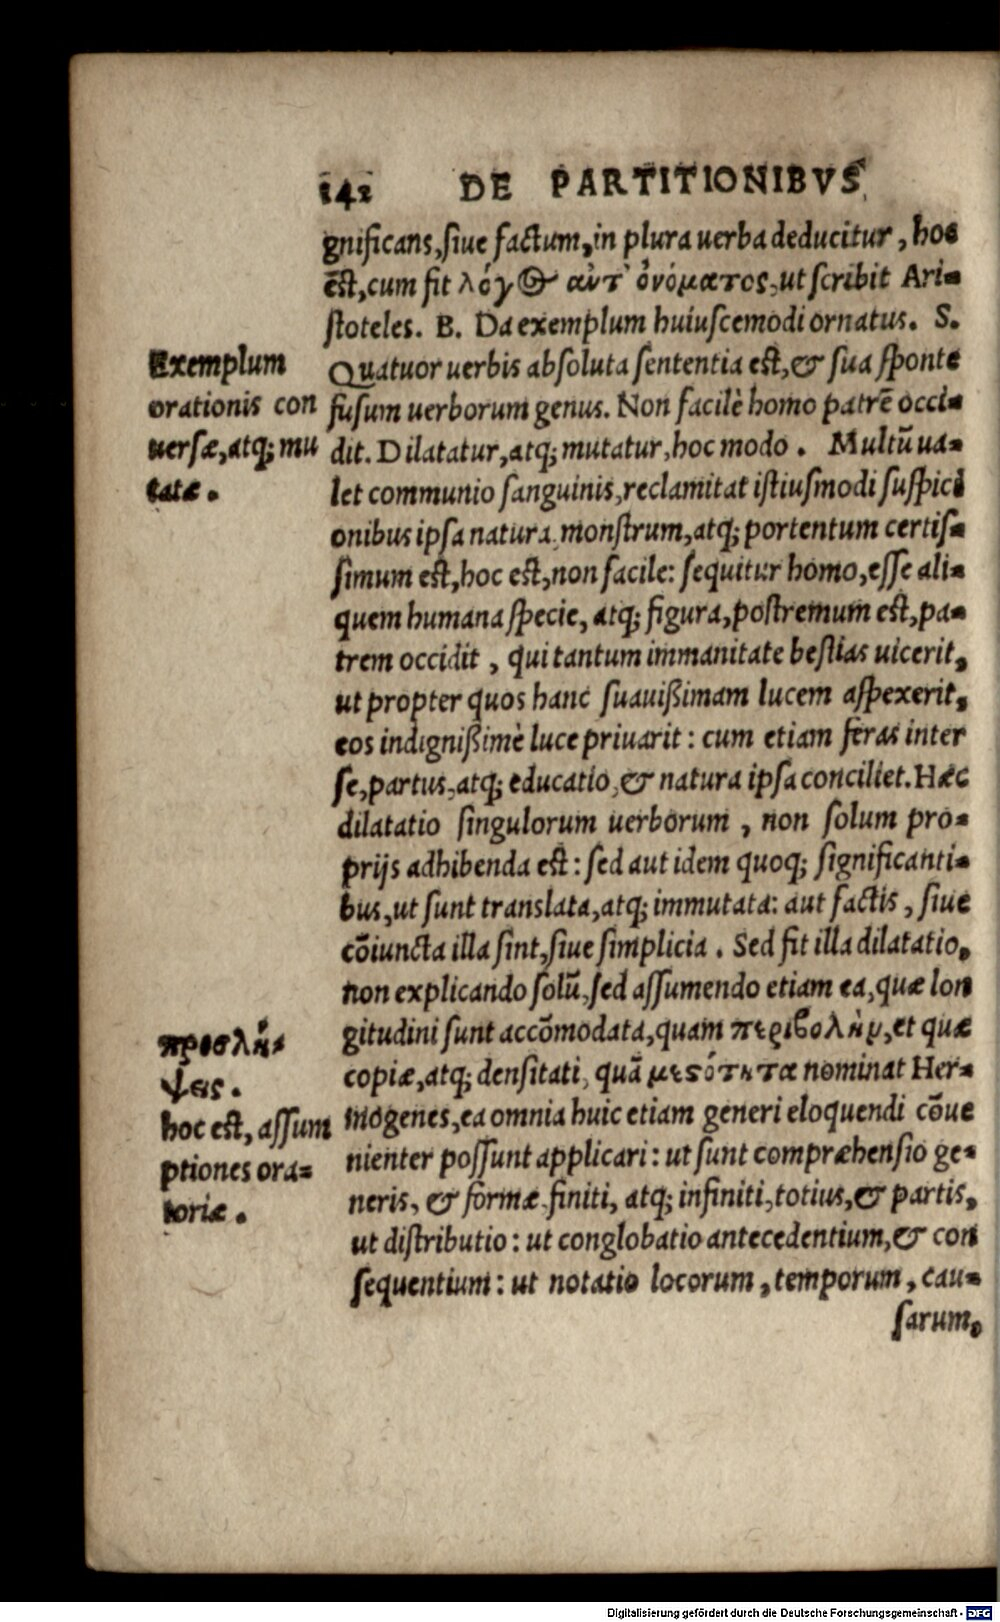 142 DE PARTITIONIBVS
gnificans, siue factum, in plura uerba deducitur, hoc
ẽst, cum fit λόγος ἀντ' ὀνόματος, ut scribit Ari-
stoteles. B. Da exemplum huiuscemodi ornatus. S.
Quatuor uerbis absoluta sententia est, & sua sponte
fusum uerborum genus. Non facilè homo patrẽ occi-
dit. Dilatatur, atq; mutatur, hoc modo. Multũ ua-
let communio sanguinis, reclamitat istiusmodi suspici
onibus ipsa natura, monstrum, atq; portentum certis-
simum est, hoc est, non facile: sequitur homo, esse ali-
quem humana specie, atq; figura, postremum est, pa-
trem occidit, qui tantum immanitate bestias uicerit,
ut propter quos hanc suauissimam lucem aspexerit,
eos indignissimè luce priuarit: cum etiam feras inter
se, partus, atq; educatio, & natura ipsa conciliet. Hæc
dilatatio singulorum uerborum, non solum pro-
prijs adhibenda est: sed aut idem quoq; significanti-
bus, ut sunt translata, atq; immutata: aut factis, siue
cõiuncta illa sint, siue simplicia. Sed fit illa dilatatio,
non explicando solũ, sed assumendo etiam ea, quæ lon
gitudini sunt accõmodata, quam περιβολὴν, et quæ
copiæ, atq; densitati, quã μεσότητα nominat Her-
mogenes, ea omnia huic etiam generi eloquendi cõue
nienter possunt applicari: ut sunt compræhensio ge-
neris, & formæ, finiti, atq; infiniti, totius, & partis,
ut distributio: ut conglobatio antecedentium, & con
sequentium: ut notatio locorum, temporum, cau-
sarum,
Exemplum
orationis con
uersæ, atq; mu
tatæ.
προσλή-
ψεις.
hoc est, assum
ptiones ora-
toriæ.
Digitalisierung gefördert durch die Deutsche Forschungsgemeinschaft - DFG